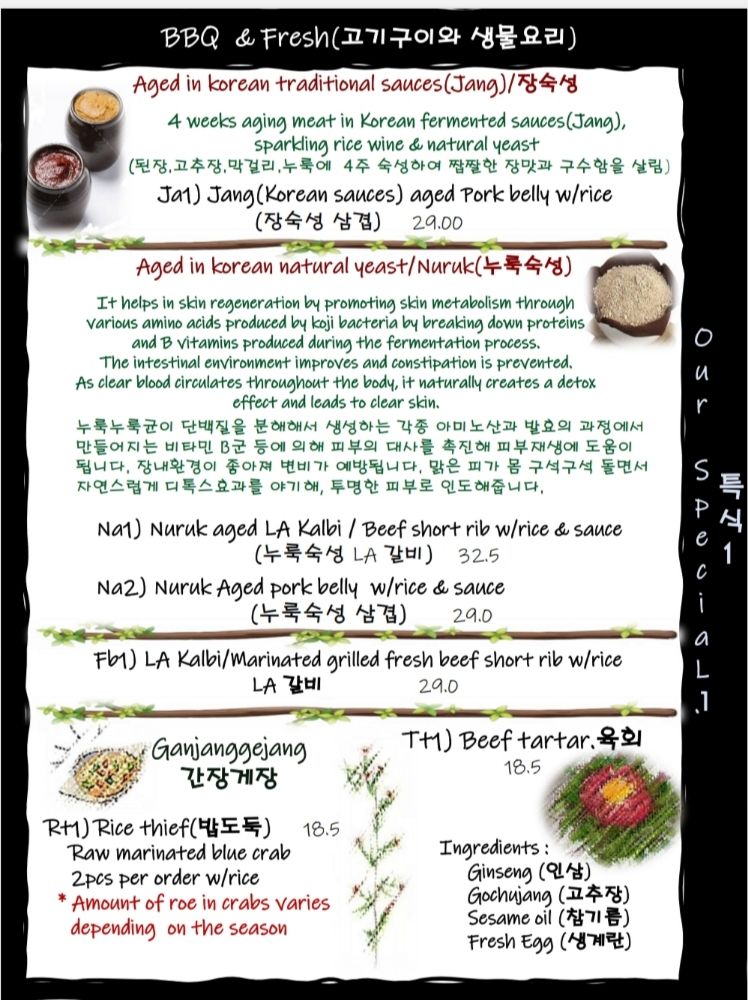 BBQ & Fresh(고기구이와 생물요리)
Aged in korean traditional sauces(Jang)/장숙성
4 weeks aging meat in Korean fermented sauces(Jang),
sparkling rice wine & natural yeast
(된장,고추장,막걸리,누룩에 4주 숙성하여 짭짤한 장맛과 구수함을 살림)
Ja1) Jang(Korean sauces) aged Pork belly w/rice
(장숙성 삼겹) 29.00
Aged in korean natural yeast/Nuruk(누룩숙성)
It helps in skin regeneration by promoting skin metabolism through
various amino acids produced by koji bacteria by breaking down proteins
and B vitamins produced during the fermentation process.
The intestinal environment improves and constipation is prevented.
As clear blood circulates throughout the body, it naturally creates a detox
effect and leads to clear skin.
누룩누룩균이 단백질을 분해해서 생성하는 각종 아미노산과 발효의 과정에서
만들어지는 비타민 B군 등에 의해 피부의 대사를 촉진해 피부재생에 도움이
됩니다. 장내환경이 좋아져 변비가 예방됩니다. 맑은 피가 몸 구석구석 돌면서
자연스럽게 디톡스효과를 야기해, 투명한 피부로 인도해줍니다.
Na1) Nuruk aged LA Kalbi / Beef short rib w/rice & sauce
(누룩숙성 LA 갈비) 32.5
Na2) Nuruk Aged pork belly w/rice & sauce
(누룩숙성 삼겹) 29.0
Fb1) LA Kalbi/Marinated grilled fresh beef short rib w/rice
LA 갈비 29.0
Ganjanggejang
간장게장
Rt1) Rice thief(밥도둑) 18.5
Raw marinated blue crab
2pcs per order w/rice
* Amount of roe in crabs varies
depending on the season
Tt1) Beef tartar.육회
18.5
Ingredients :
Ginseng (인삼)
Gochujang (고추장)
Sesame oil (참기름)
Fresh Egg (생계란)
Our Special.1
특식1